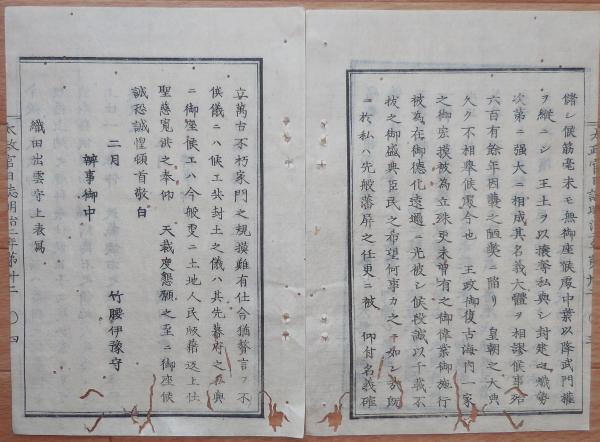 儲シ候筋毫末モ無御座候處中葉以降武門權
ヲ縱ニシ王土ヲ以攘奪私與シ封建之職勢
次第ニ强大ニ相成其名義大體ヲ相謬候事殆
六百有餘年因襲之陋弊ニ陷リ 皇朝之大典
久ク不相擧候處今也 王政御復古海内一家
之御宏摸被為立殊更未曾有之御偉業御施行
被為在御德化遠邇ニ光被シ候段誠以千載不
拔之御盛典臣民之希望何事カ之ニ如シ旣
ニ於私ハ先般藩屏之任更ニ被 仰付名義確
立萬古不朽家門之規摸難有仕合猶贅言ヲ不
俟儀ニ候エ共封土之儀ハ其先幕府之私與
ニ御座候エハ今般更ニ土地人民版籍返上仕
聖慈寬洪之奉仰 天裁度懇願之至ニ御座候
誠恐誠惶頓首敬白
二月 竹腰伊豫守
辨事御中
織田出雲守上表寫
太政官日誌明治二年第十二 〇四